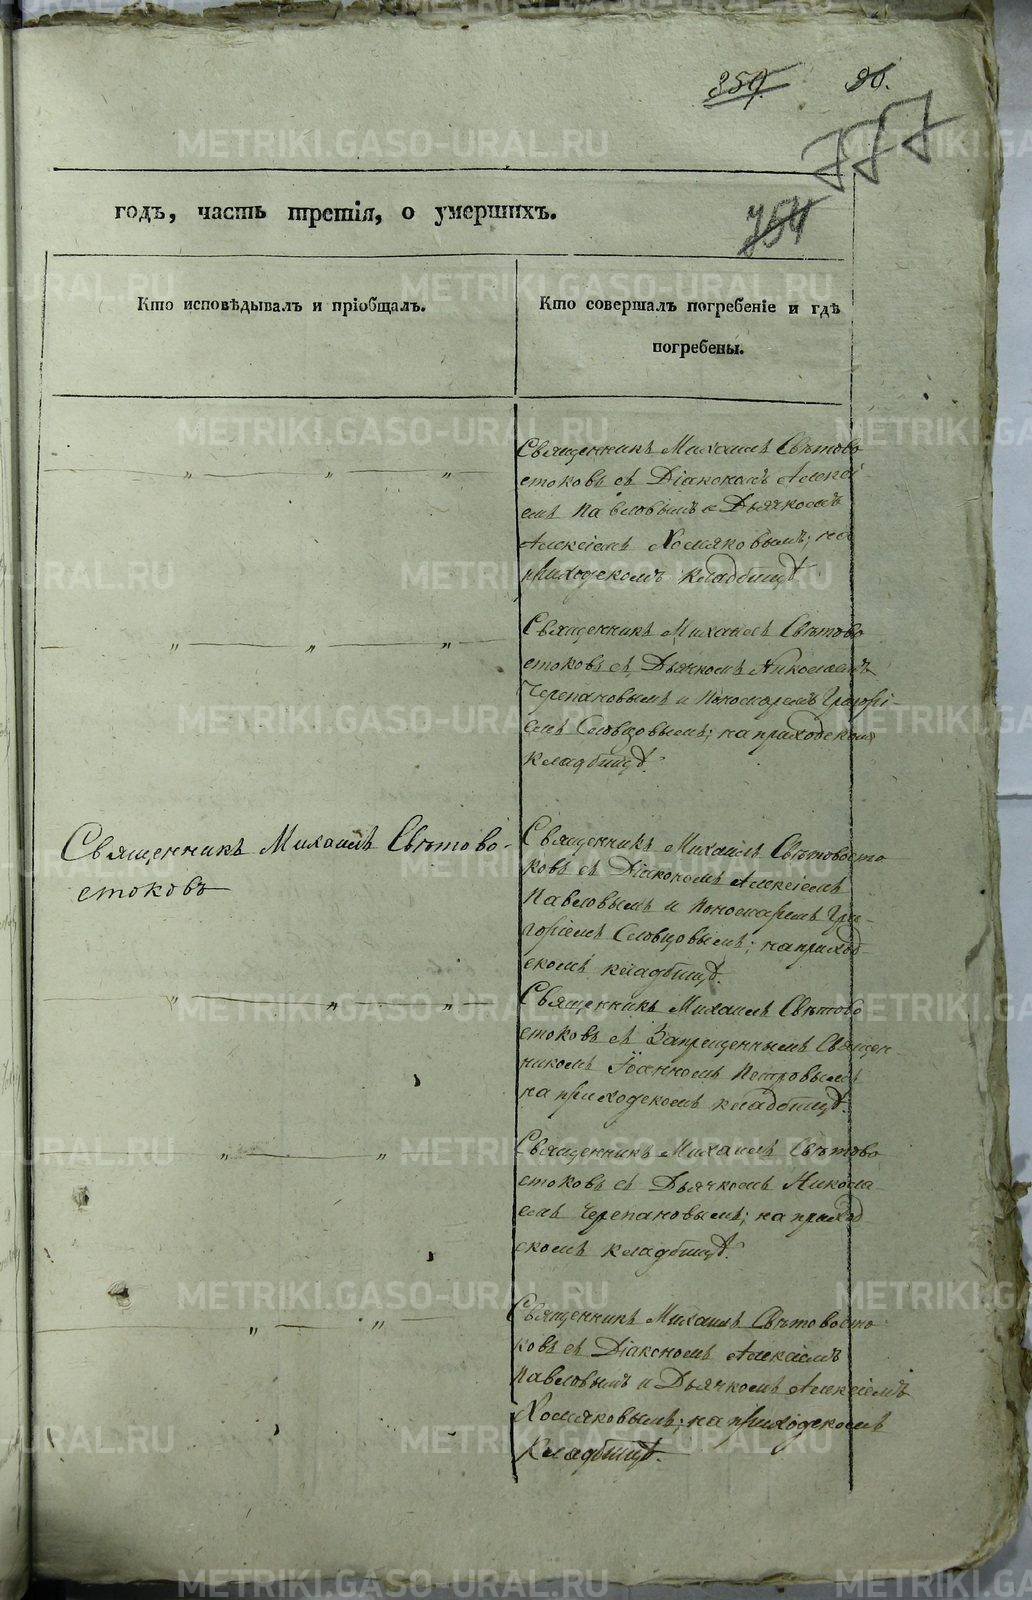 359.
90.
777
754
годъ, часть третія, о умершихъ.
Кто исповѣдывалъ и пріобщалъ.
Кто совершалъ погребеніе и гдѣ
погребены.
Священникъ Михаилъ Свѣтово
стоковъ съ Діакономъ Алексі-
емъ Павловымъ и Дьячкомъ
Алексіемъ Хомяковымъ; на
приходскомъ кладбищѣ
Священникъ Михаилъ Свѣтово
стоковъ съ Дьячкомъ Николаемъ
Черепановымъ и Пономаремъ Григорі-
емъ Словцовымъ; на приходскомъ
кладбищѣ.
Священникъ Михаилъ Свѣтово-
стоковъ
Священникъ Михаилъ Свѣтовосто
ковъ съ Діакономъ Алексіемъ
Павловымъ и Пономаремъ Гри-
горіемъ Словцовымъ; на приход-
скомъ кладбищѣ.
Священникъ Михаилъ Свѣтово
стоковъ съ Запрещеннымъ Священ-
никомъ Іоанномъ Петровымъ
на приходскомъ кладбищѣ.
Священникъ Михаилъ Свѣтово
стоковъ съ Дьячкомъ Никола
емъ Черепановымъ; на приход
скомъ кладбищѣ.
Священникъ Михаилъ Свѣтовосто
ковъ съ Діакономъ Алексіемъ
Павловымъ и Дьячкомъ Алексіемъ
Хомяковымъ; на приходскомъ
кладбищѣ.
METRIKI.GASO-URAL.RU